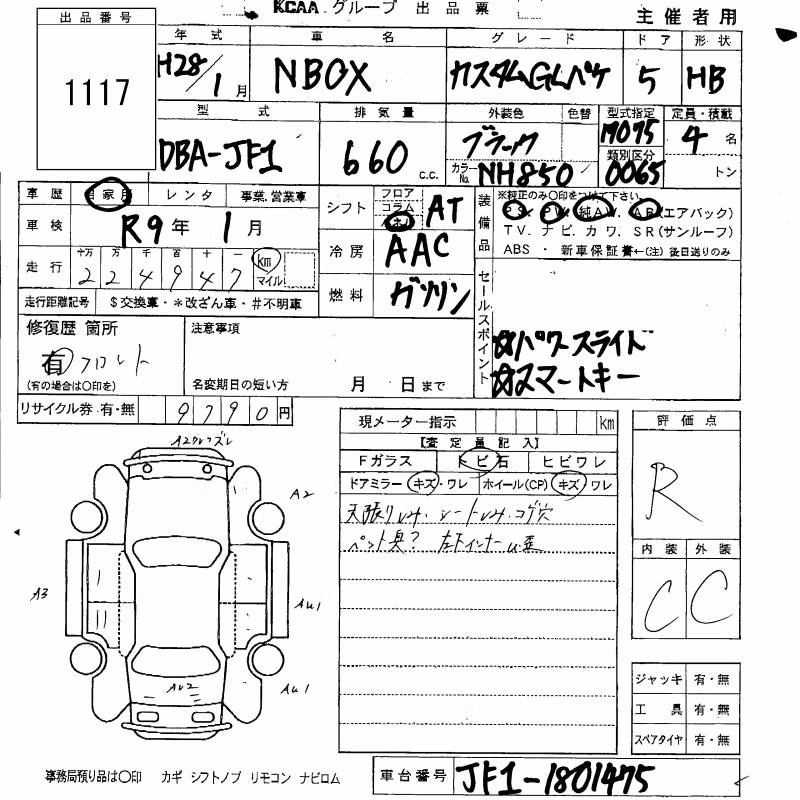 KCAA グループ 出品票
主催者用
出品番号
1117
年式 車名 グレード ドア 形状
H28/1月 NBOX カスタムGLパケ 5 HB
型式 排気量 外装色 色替 型式指定 定員・積載
DBA-JF1 660 c.c. ブラック 17075 4名
類別区分
カラーNo. NH850 0065 トン
車歴 自家用 レンタ 事業、営業車
車検 R9年 1月
走行 十万 万 千 百 十 一
224947 km マイル
走行距離記号 $交換車・*改ざん車・#不明車
シフト フロア コラム AT
冷房 AAC
燃料 ガソリン
装備品
※純正のみ〇印をつけて下さい。
PS. PW. 純AW. AB(エアバック)
TV. ナビ. カワ. SR(サンルーフ)
ABS・新車保証書←(注)後日送りのみ
セールスポイント
☆パワースライド
☆スマートキー
修復歴 箇所
有 フロント
(有の場合は〇印を)
注意事項
名変期日の短い方 月 日まで
リサイクル券 有・無 9790円
現メーター指示 km
【査定員記入】
Fガラス トビ石 ヒビワレ
ドアミラー キズ・ワレ ホイール(CP) キズ ワレ
天張りシミ、シートシミ・コゲ穴
ペット臭?
評価点
R
内装 外装
C C
A2
A3
AU1
AU1
AU2
ジャッキ 有・無
工具 有・無
スペアタイヤ 有・無
事務局預り品は〇印 カギ シフトノブ リモコン ナビロム
車台番号 JF1-1801475